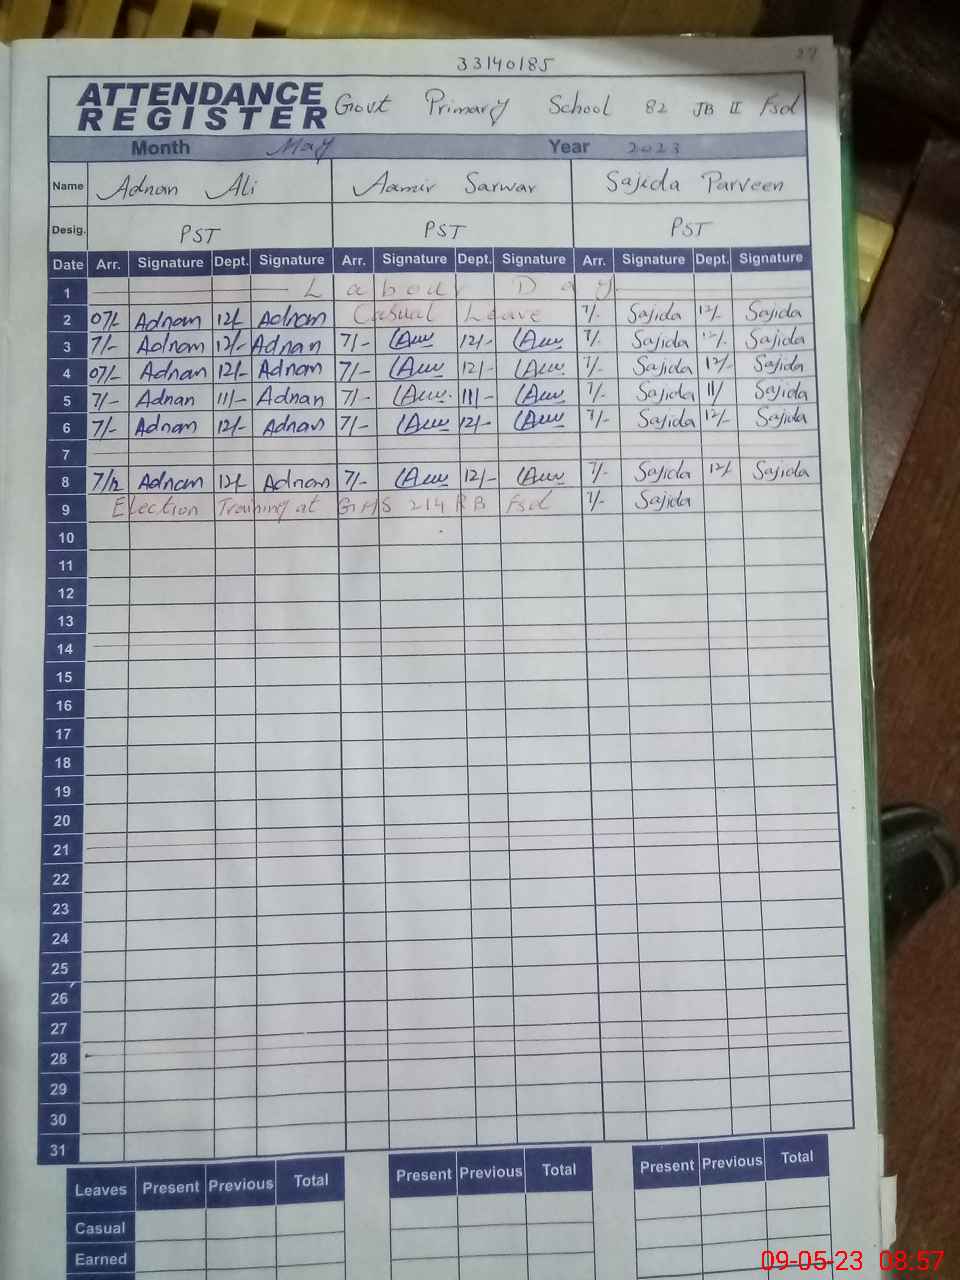 33140185
27
ATTENDANCE REGISTER Govt Primary School 82 JB II Fsd
Month May Year 2023
Name Adnan Ali Aamir Sarwar Sajida Parveen
Desig. PST PST PST
Date Arr. Signature Dept. Signature Arr. Signature Dept. Signature Arr. Signature Dept. Signature
1 Labour Day
2 07/- Adnan 12/- Adnan Casual Leave 7/- Sajida 12/- Sajida
3 7/- Adnan 12/- Adnan 7/- 12/- 7/- Sajida 12/- Sajida
4 07/- Adnan 12/- Adnan 7/- 12/- 7/- Sajida 12/- Sajida
5 7/- Adnan 11/- Adnan 7/- 11/- 7/- Sajida 11/ Sajida
6 7/- Adnan 12/- Adnan 7/- 12/- 7/- Sajida 12/- Sajida
7
8 Adnan 12/- Adnan 7/- 12/- 7/- Sajida 12/- Sajida
9 Election Training at GHS 214 RB Fsd 7/- Sajida
10
11
12
13
14
15
16
17
18
19
20
21
22
23
24
25
26
27
28
29
30
31
Leaves Present Previous Total Present Previous Total Present Previous Total
Casual
Earned
09-05-23 08:57